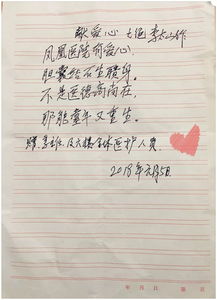 献爱心 七绝 李太山作
凤凰医院有爱心
胆囊结石坐骑身
不是医德高尚在
那能童年又重生
赠 及六楼全体医护人员
2018年元月5日
年 月 日 第 页